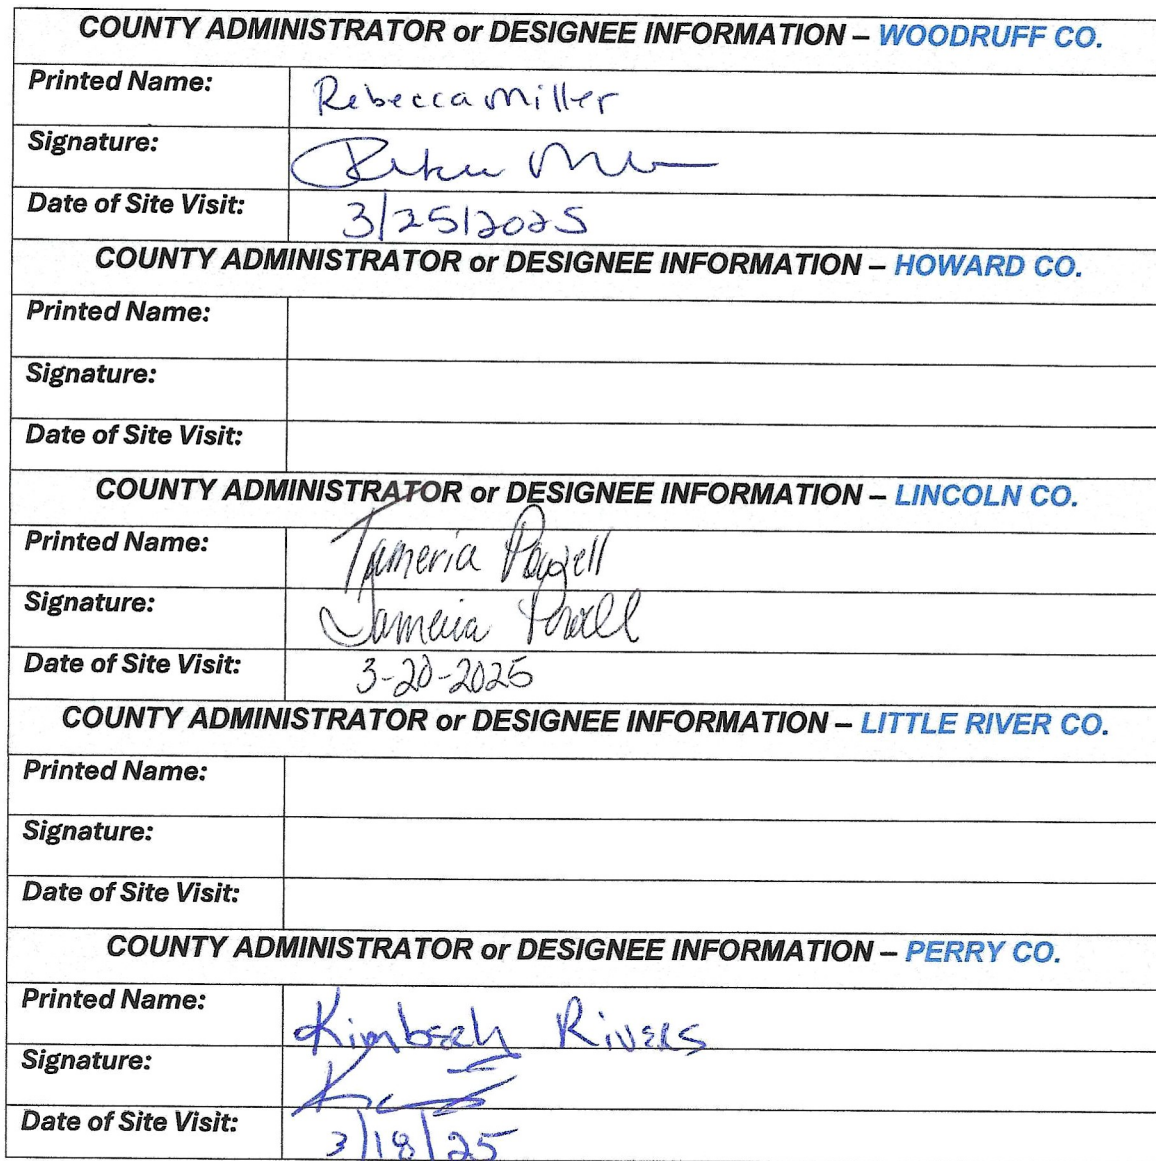 COUNTY ADMINISTRATOR or DESIGNEE INFORMATION – WOODRUFF CO.
Printed Name: Rebecca Miller
Signature:
Date of Site Visit: 3/25/2025
COUNTY ADMINISTRATOR or DESIGNEE INFORMATION – HOWARD CO.
Printed Name:
Signature:
Date of Site Visit:
COUNTY ADMINISTRATOR or DESIGNEE INFORMATION – LINCOLN CO.
Printed Name: Tameria Powell
Signature: Tameria Powell
Date of Site Visit: 3-20-2025
COUNTY ADMINISTRATOR or DESIGNEE INFORMATION – LITTLE RIVER CO.
Printed Name:
Signature:
Date of Site Visit:
COUNTY ADMINISTRATOR or DESIGNEE INFORMATION – PERRY CO.
Printed Name: Rivers
Signature:
Date of Site Visit: 3/18/25